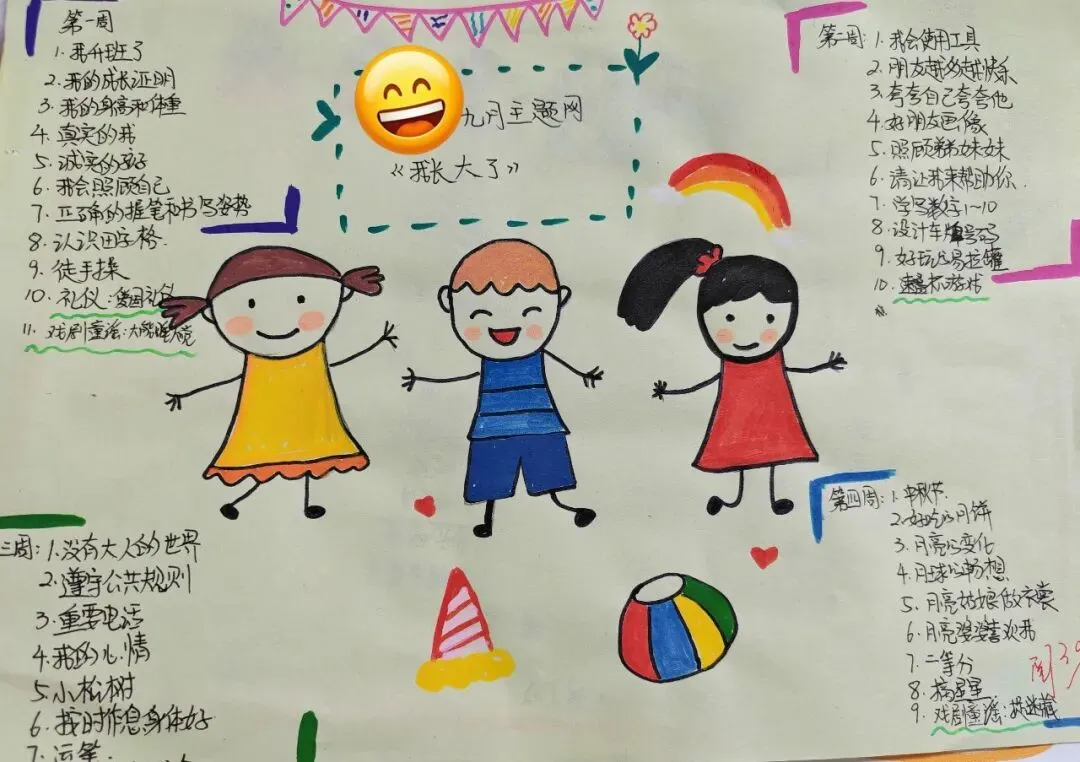 九月主题网
《我长大了》
第一周
1. 我升班了
2. 我的成长证明
3. 我的身高和体重
4. 真实的我
5. 诚实的孩子
6. 我会照顾自己
7. 正确的握笔和书写姿势
8. 认识田字格.
9. 徒手操
10. 礼仪:爱国礼仪
11. 戏剧童谣:大熊
第二周: 1. 我会使用工具
2. 朋友越多越快乐
3. 夸夸自己夸夸他
4. 好朋友画像
5. 照顾弟弟妹妹
6. 请让我来帮助你.
7. 学写数字1~10
8. 设计车牌号码
9. 好玩的易拉罐
10. 速叠杯游戏
三周: 1. 没有大人的世界
2. 遵守公共规则
3. 重要电话
4. 我的心情
5. 小松树
6. 按时作息身体好
7. 运笔.
第四周: 1. 中秋节.
2. 好吃的月饼
3. 月亮的变化
4. 月球的畅想
5. 月亮姑娘做衣裳
6. 月亮婆婆喜欢我
7. 二等分
8. 摘星星
9. 戏剧童谣:捉迷藏